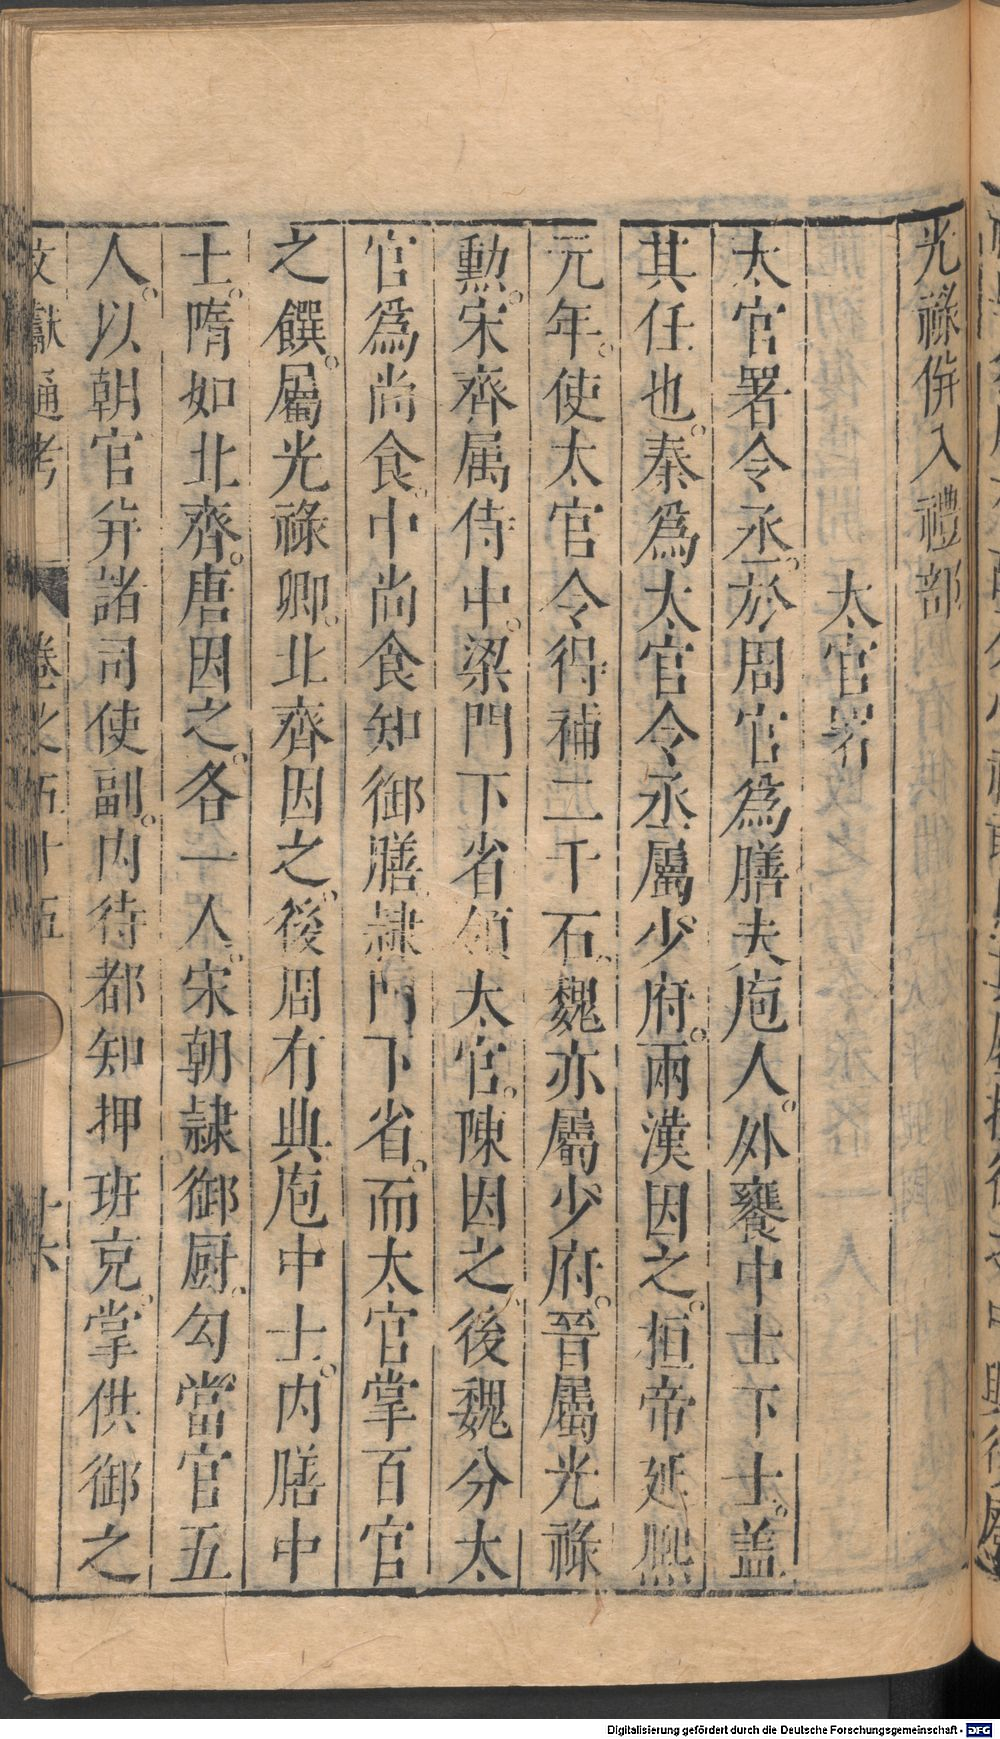 光祿併入禮部
太官署
太官署令丞。於周官為膳夫庖人。外饔中士下士。盖
其任也。秦爲太官令丞屬少府。兩漢因之。桓帝延熙
元年。使太官令得補二千石。魏亦屬少府。晉屬光祿
勳。宋齊属侍中。梁門下省領太官。陳因之。後魏分太
官爲尚食。中尚食知御膳隷門下省。而太官掌百官
之饌。屬光祿卿。北齊因之。後周有典庖中士。内膳中
士。隋如北齊。唐因之。各一人。宋朝隷御厨。勾當官五
人。以朝官并諸司使副。内侍都知押班充。掌供御之
文獻通考 卷之五十五 十六
Digitalisierung gefördert durch die Deutsche Forschungsgemeinschaft - DFG